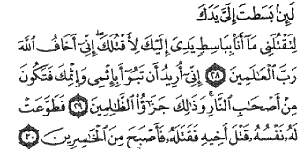 لَئِنۢ بَسَطتَ إِلَىَّ يَدَكَ
لِتَقْتُلَنِى مَآ أَنَا۠ بِبَاسِطٍ يَدِىَ إِلَيْكَ لِأَقْتُلَكَ إِنِّىٓ أَخَافُ ٱللَّهَ
رَبَّ ٱلْعَٰلَمِينَ ٢٨ إِنِّىٓ أُرِيدُ أَن تَبُوٓأَ بِإِثْمِى وَإِثْمِكَ فَتَكُونَ
مِنْ أَصْحَٰبِ ٱلنَّارِ وَذَٰلِكَ جَزَٰٓؤُا۟ ٱلظَّٰلِمِينَ ٢٩ فَطَوَّعَتْ
لَهُۥ نَفْسُهُۥ قَتْلَ أَخِيهِ فَقَتَلَهُۥ فَأَصْبَحَ مِنَ ٱلْخَٰسِرِينَ ٣٠